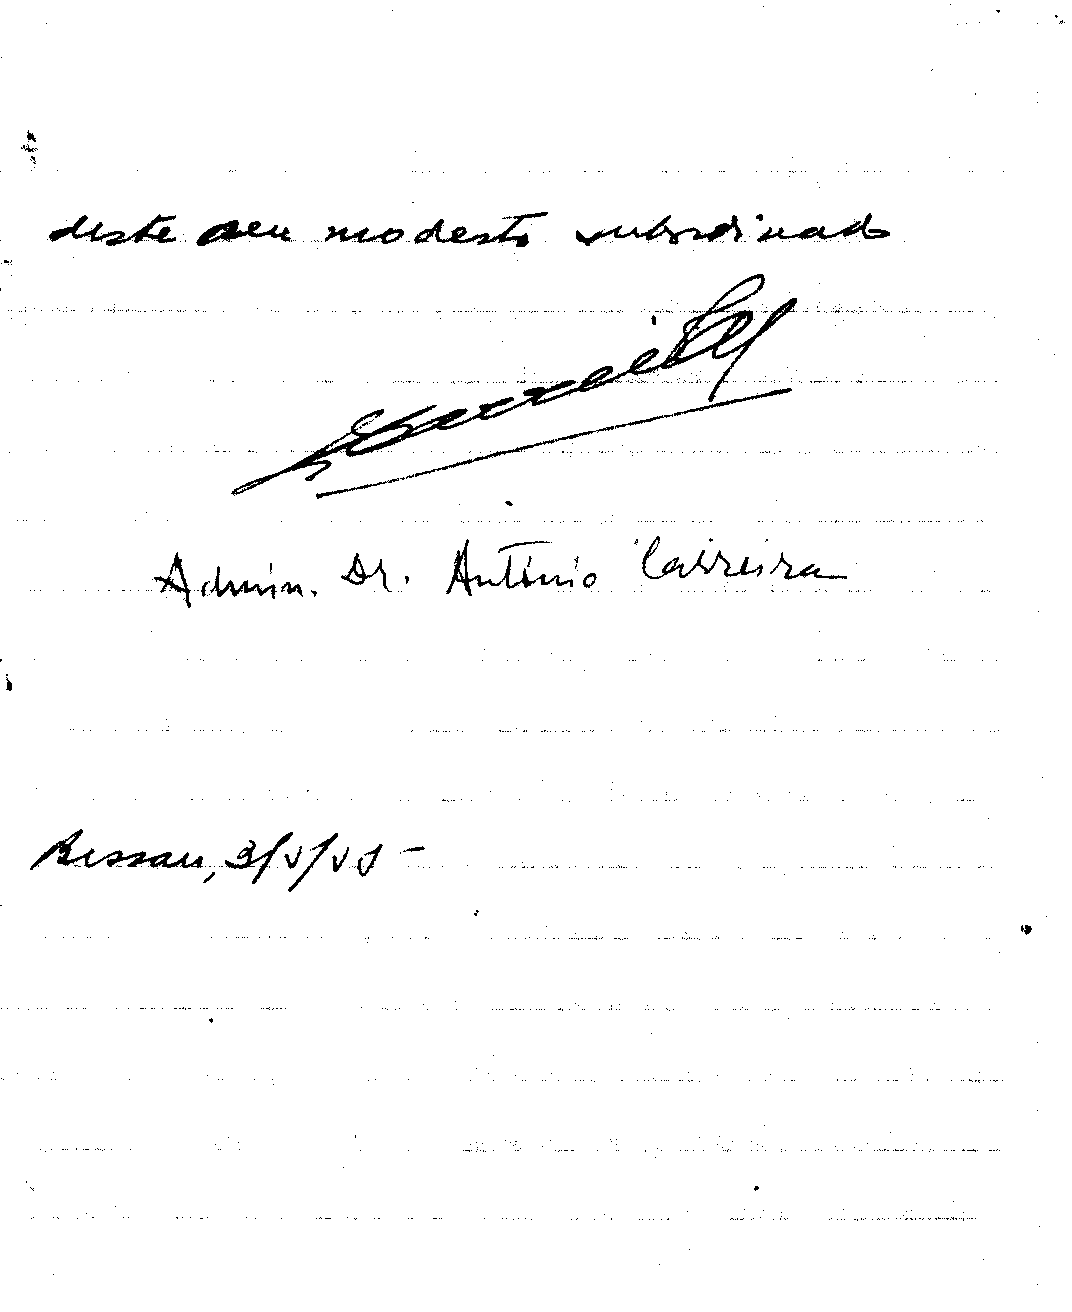 deste seu modesto subordinado
Admin. Dr. António Carreira
Bissau, 3/V/55 -